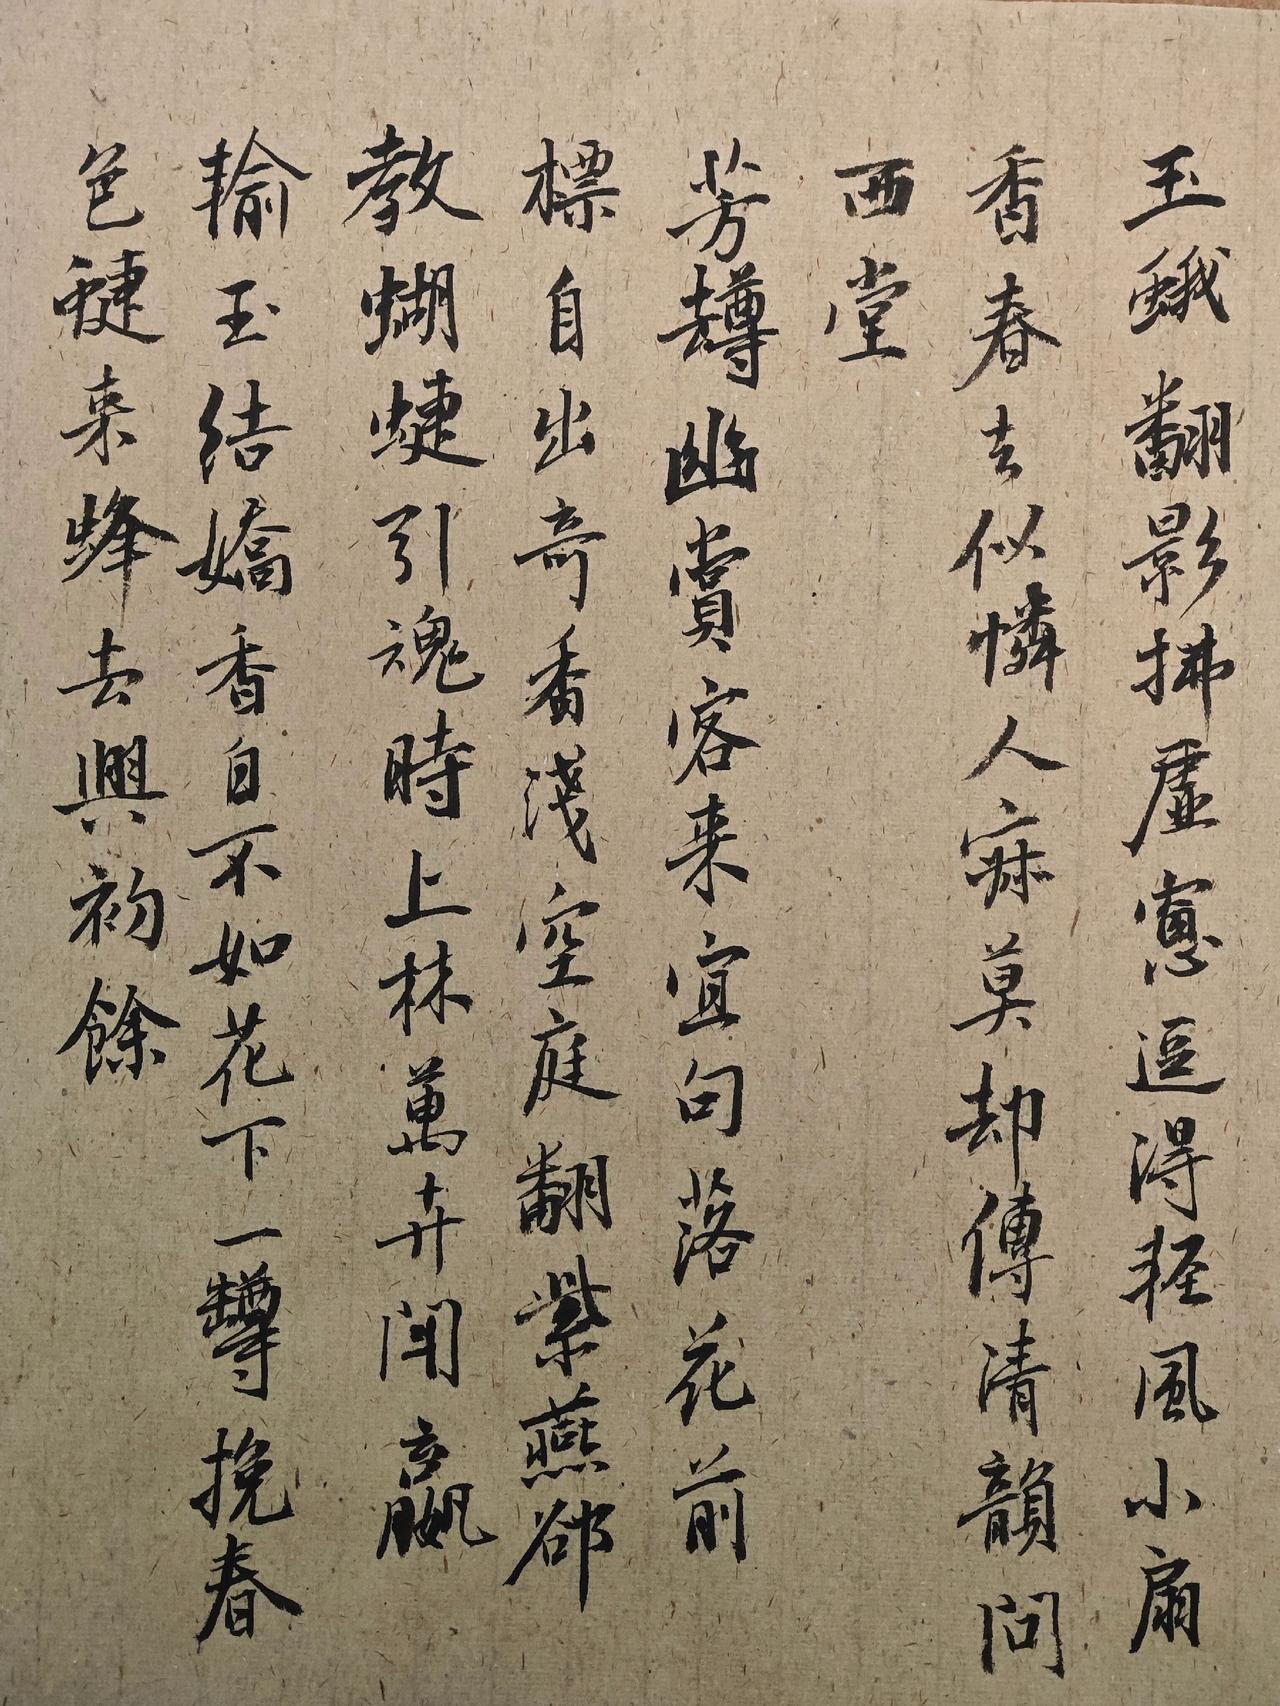 玉蛾翻影拂虛窻逗得輕風小扇
香春去似憐人寂莫却傳清韻問
西堂
芳罇幽賞客來宜句落花前
標自出奇香淺空庭翻紫燕郤
教蝴蜨引魂時上林萬卉閒嬴
輸玉結嬌香自不如花下一罇挽春
色蜨来蜂去興初餘